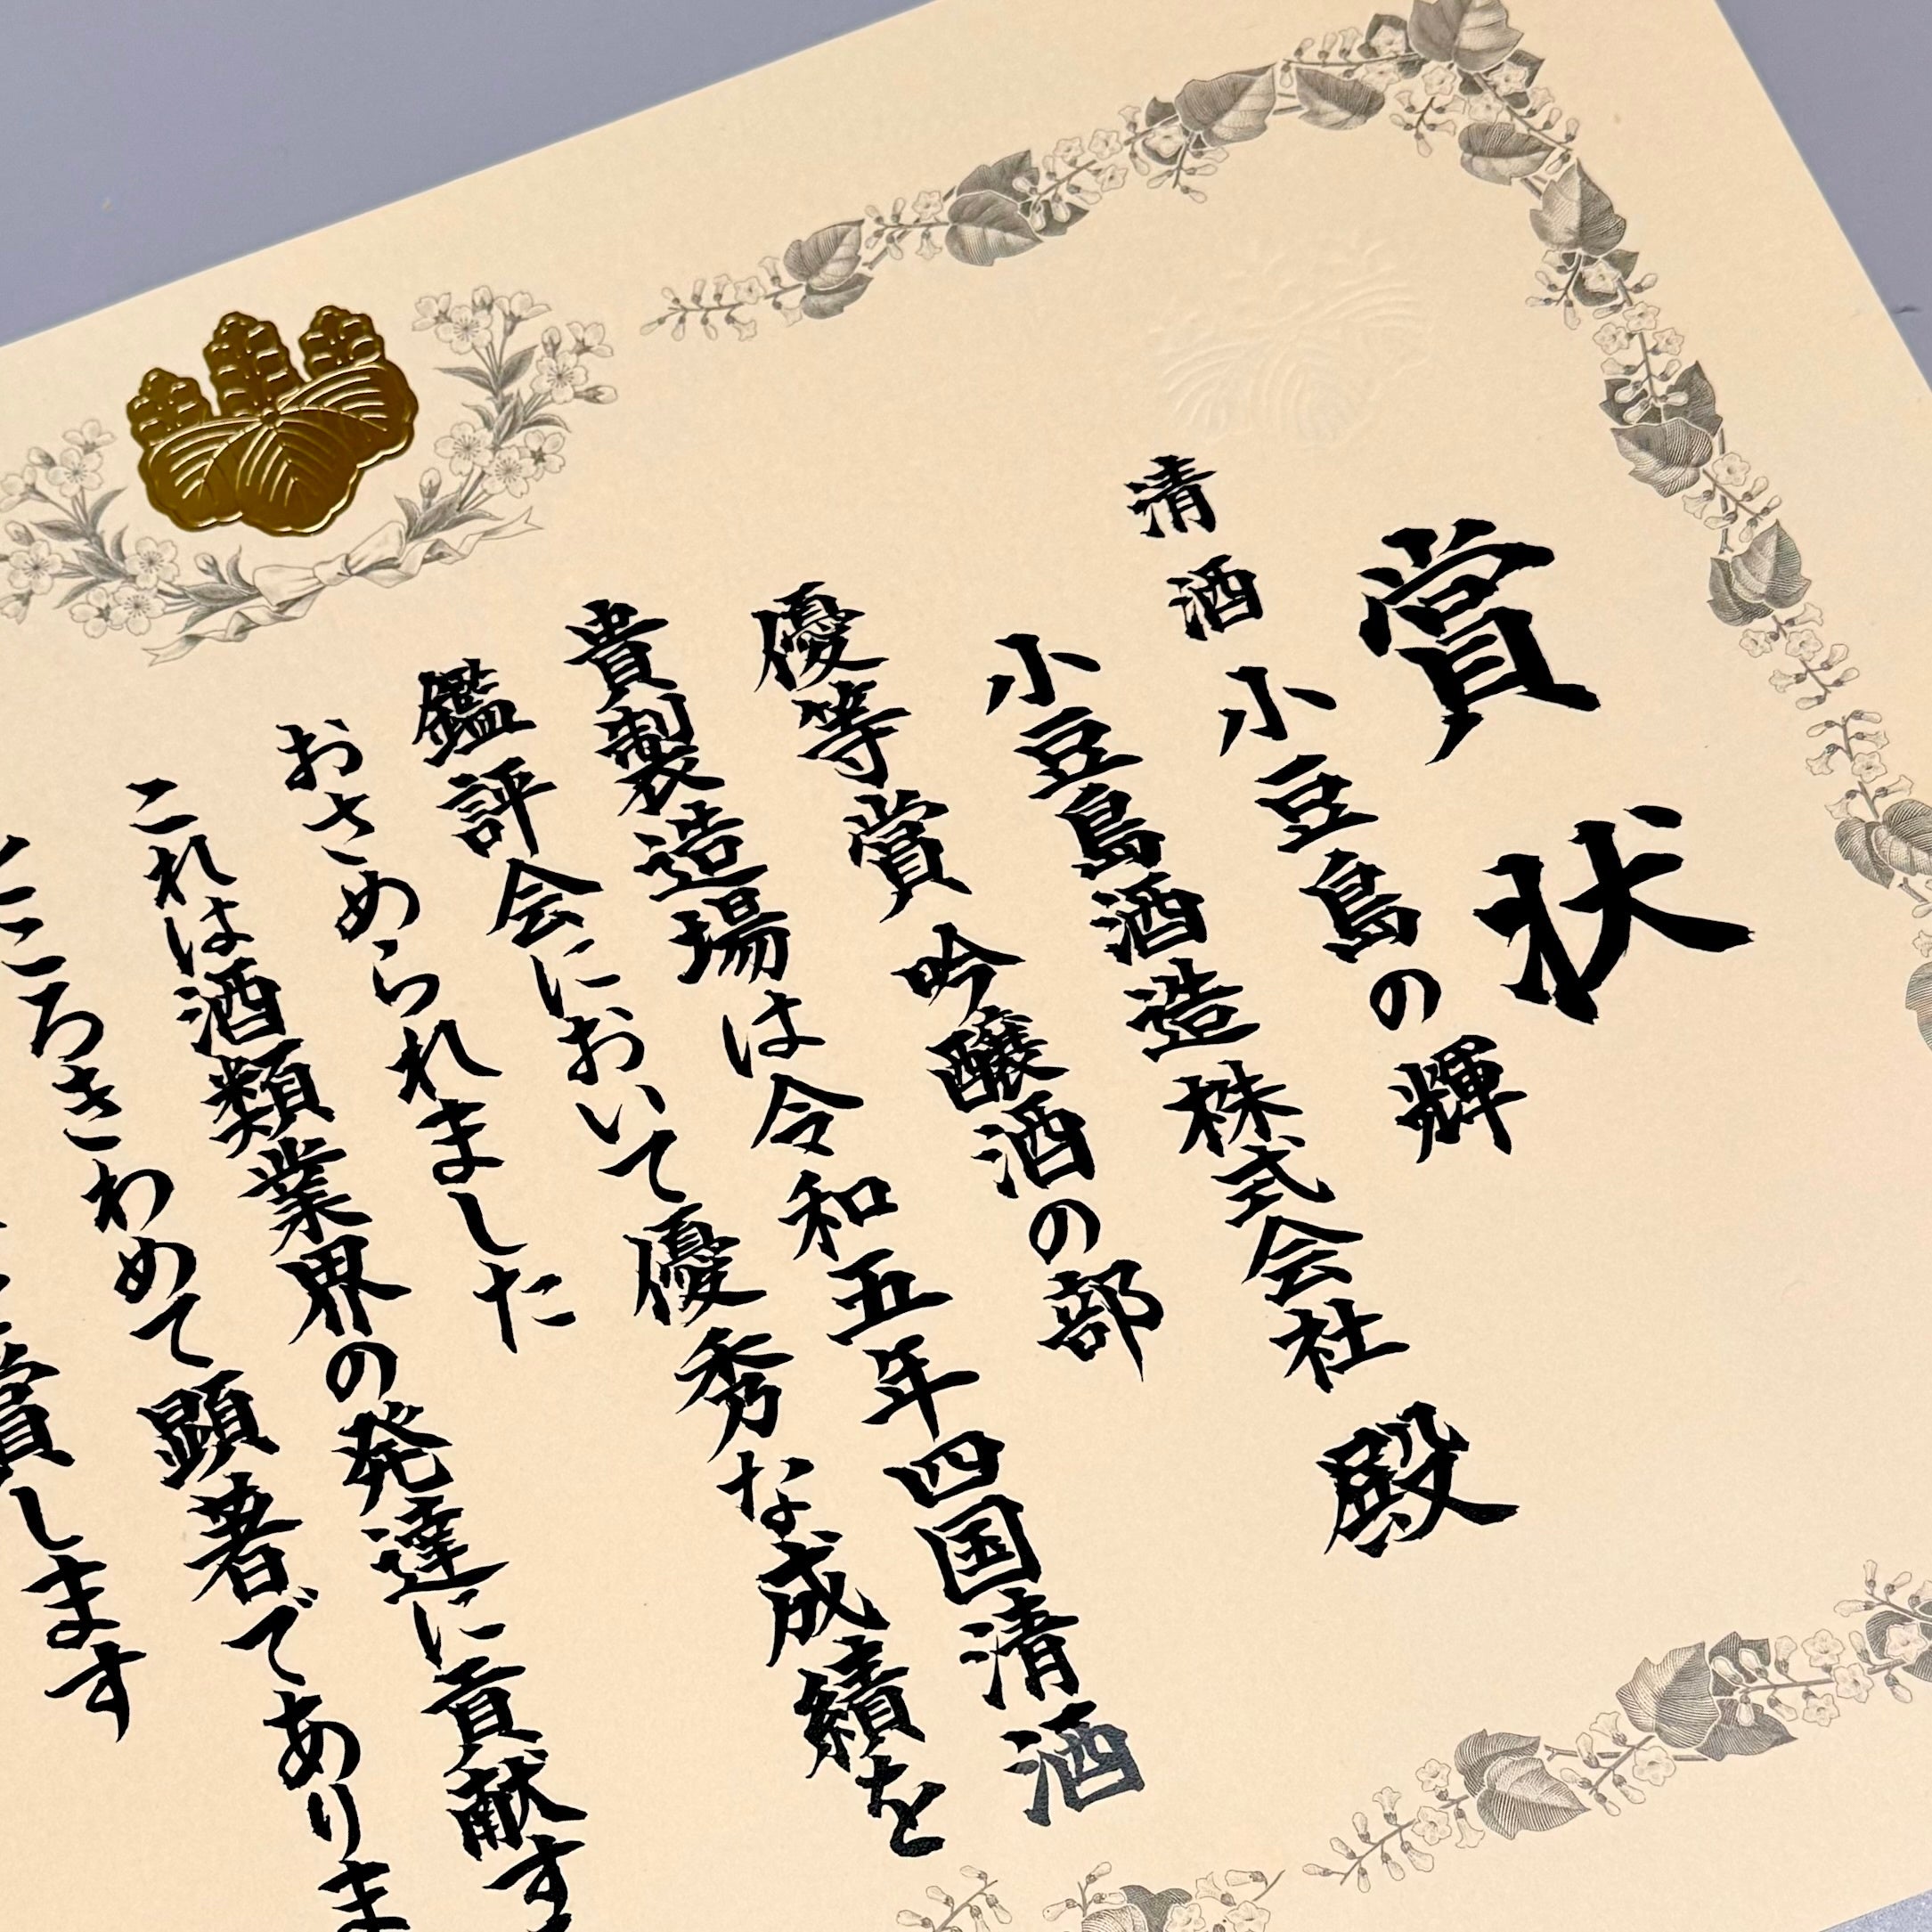 賞状
清酒 小豆島の輝
小豆島酒造株式会社 殿
優等賞 吟醸酒の部
貴製造場は令和五年四国清酒
鑑評会において優秀な成績を
おさめられました
これは酒類業界の発達に貢献す
ところきわめて顕著でありま
賞します